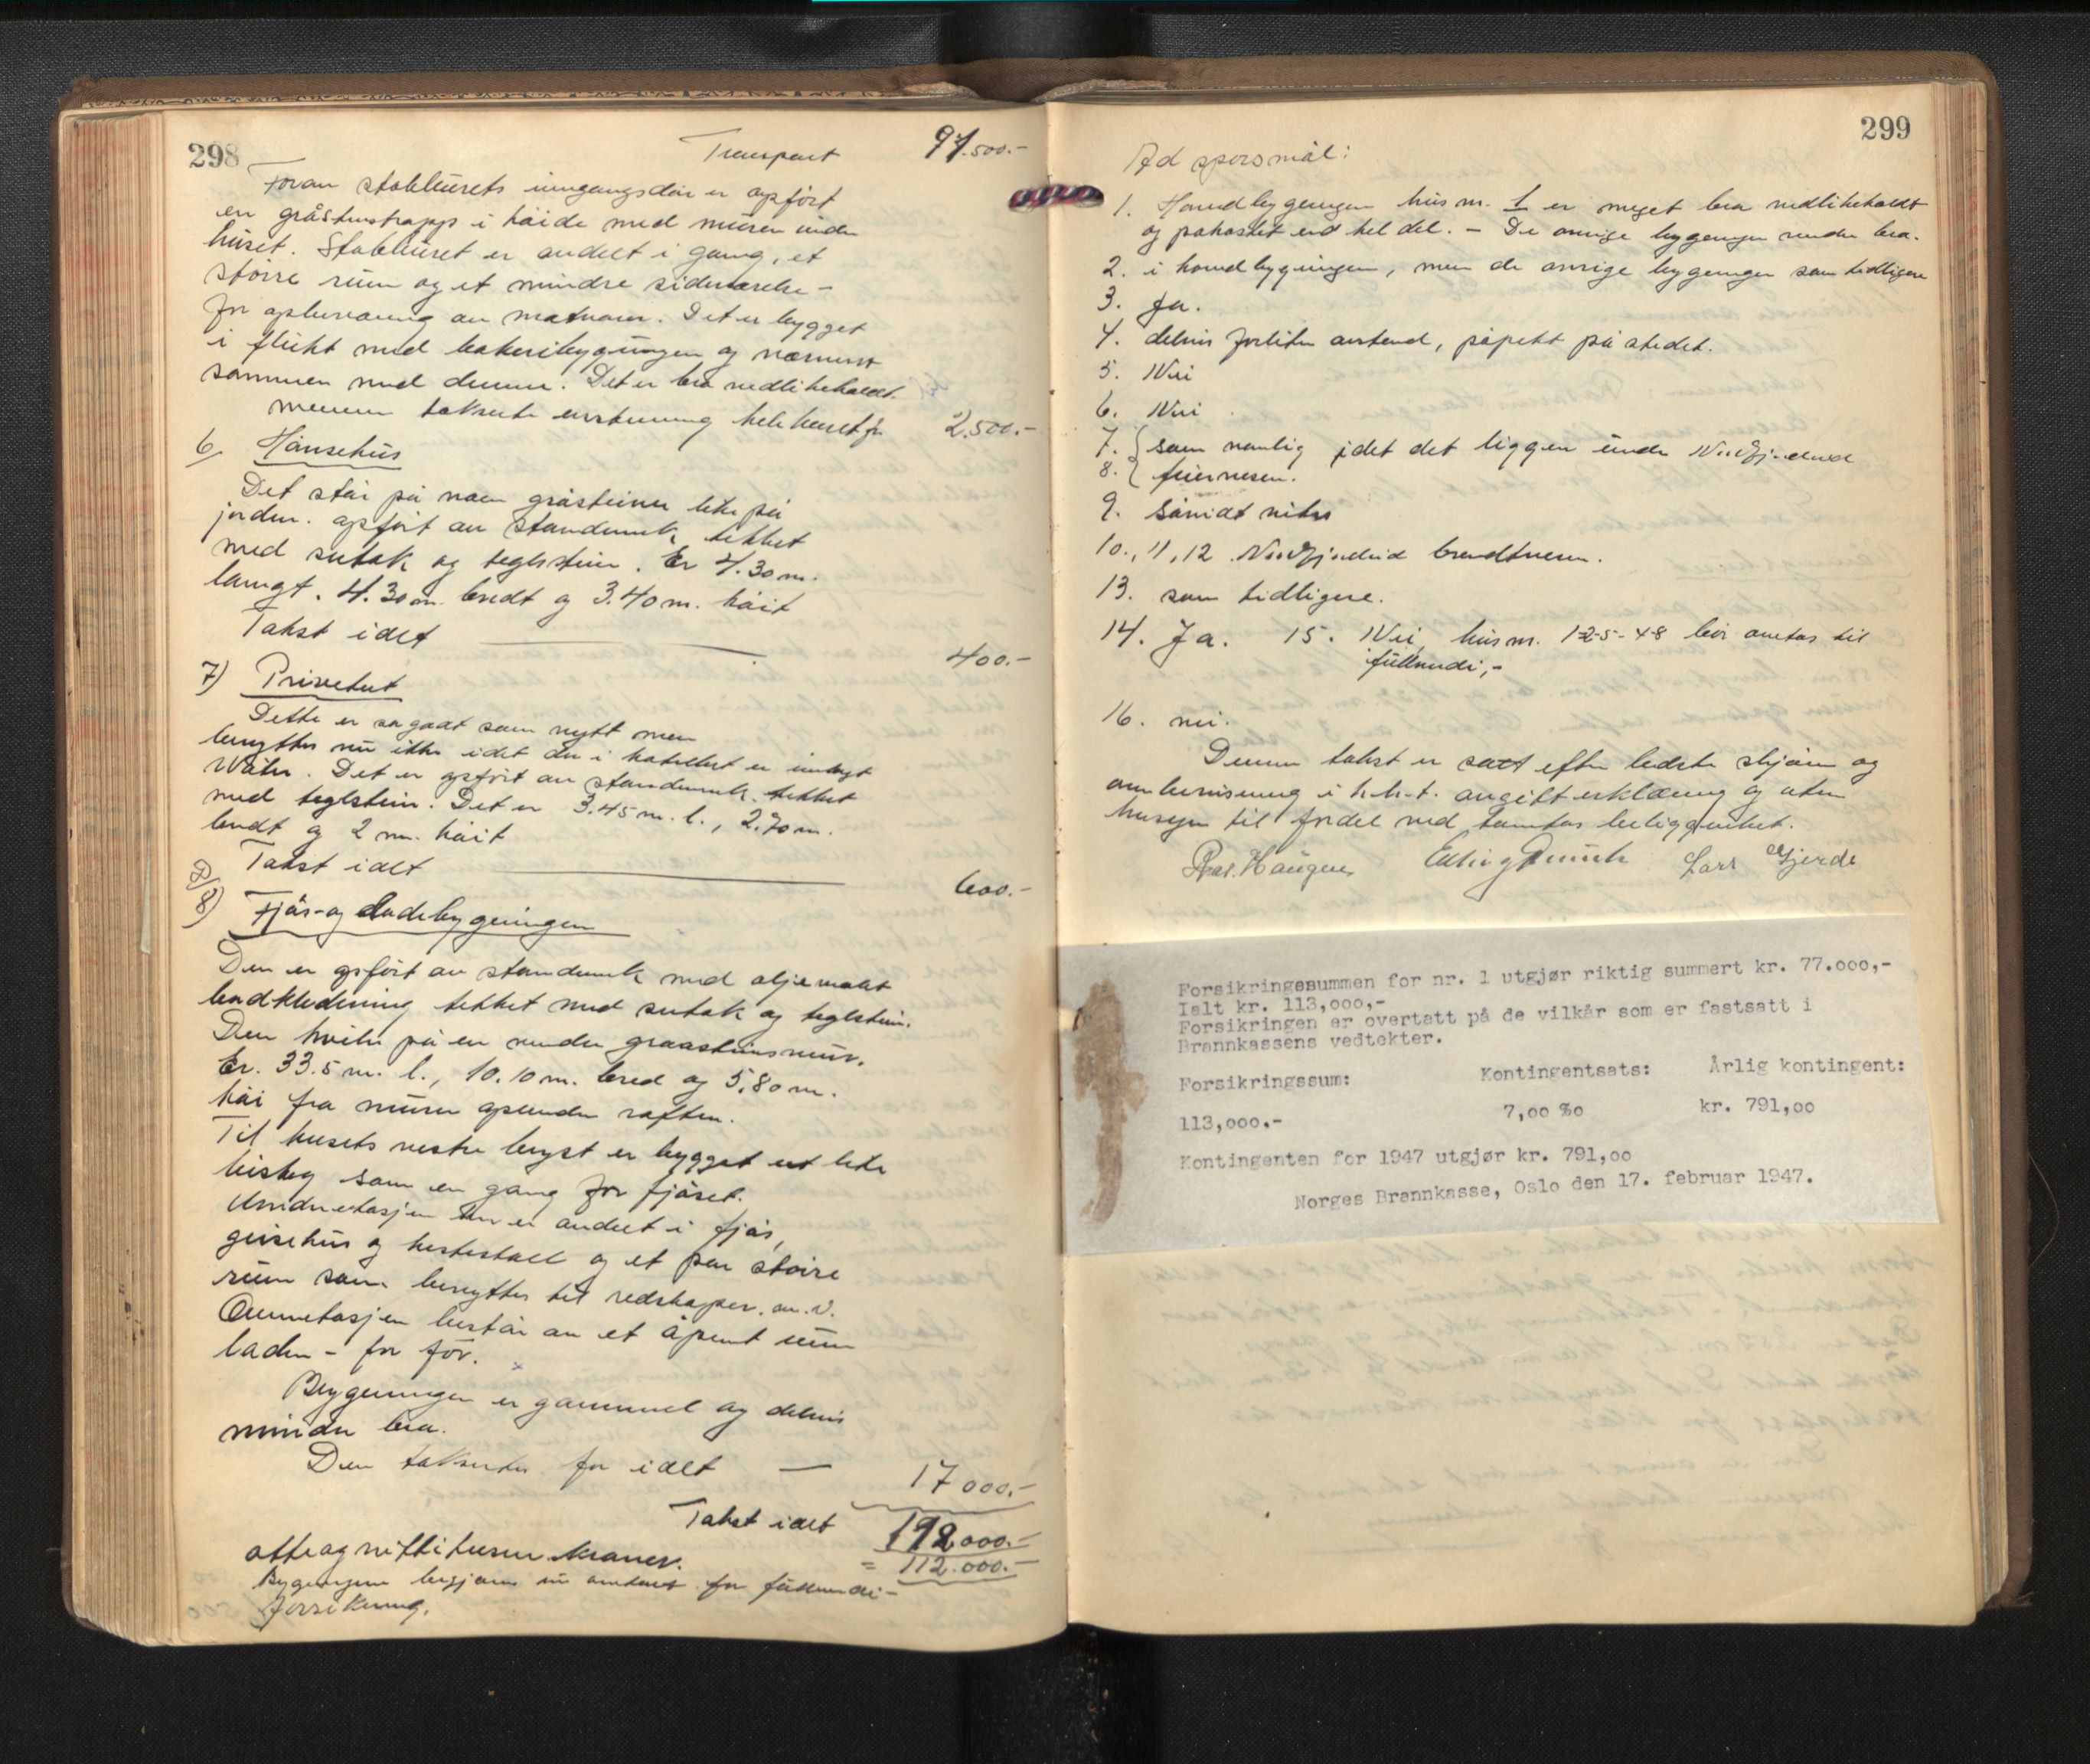 298
Transport 91.500.-
Foran stabburets inngangsdør er opført
en gråstenstrapp i høide med muren under
huset. Stabburet er andelt i gang, et
større rum og et mindre sideværelse -
for opbevaring av matvarer. Det er bygget
i flukt med bakeribygningen og nærmest
sammen med denne. Det er bra vedlikeholdt.
menn takserte innstemmig hele huset fr. 2.500.-
6/ Hønsehus
Det står på noen gråsteiner like på
jorden. opført av standerverk, tekket
med sutak og teglstein. Er 4.30 m.
langt. 4.30 m. bredt og 3.40 m. høit
Takst i alt 400.-
7) Privetet
Dette er sagodt som nytt men
benyttes nu ikke idet der i hotellet er innlagt
Water. Det er opført av standerverk. tekket
med teglstein. Det er 3.45 m. l., 2.70 m.
bredt og 2 m. høit
Takst i alt 600.-
8) Fjøs- og Ladebygningen
Den er opført av standerverk med oljemalt
bordkledning tekket med sutak og teglstein.
Den hviler på en under graastensmur.
Er. 33.5 m. l., 10.10 m. bred og 5.80 m.
høi fra muren oppunder raften.
Til husets vestre bryst er bygget et lite
bislag som en gang for fjøset.
Underetasjen er andelt i fjøs,
grisehus og hestestall og et par større
rum som benyttes til redskaper. m. v.
Overetasjen består av et åpent rum
laden - for fôr.
Bygningen er gammel og delvis
mindre bra.
Den takseres for i alt — 17 000.-
Takst i alt 112.000.-
= 112.000.-
otte og nitti tusen kroner.
Bygningene begjæres nu antatt for fullverdi-
forsikring.
299
Ad spørsmål:
1. Hovedbygningen hus nr. 1 er meget bra vedlikeholdt
og påkostet en hel del. - De øvrige bygninger under bra.
2. i hovedbygningen, men de øvrige bygninger som tidligere
3. Ja.
4. delvis forliten avstand, påpekt på stedet.
5. Nei
6. Nei
7. { som vanlig idet det ligger under Nordfjordeid
8. { feiervesen.
9. Såvidt vites
10., 11, 12 Nordfjordeid brandtvesen.
13. som tidligere.
14. Ja. 15. Nei, hus nr. 1-2-5-4-8 bør antas til
fullverdi,-
16. nei.
Denne takst er satt efter bedste skjønn og
overbevisning i h.h.t. avgitt erklæring og uten
hensyn til fordel ved tomtas beliggenhet.
Ras. Haugen Lars Gjerde
Forsikringssummen for nr. 1 utgjør riktig summert kr. 77.000,-
Ialt kr. 113,000,-
Forsikringen er overtatt på de vilkår som er fastsatt i
Brannkassens vedtekter.
Forsikringssum: Kontingentsats: Årlig kontingent:
113,000.- 7,00 ‰ kr. 791,00
Kontingenten for 1947 utgjør kr. 791,00
Norges Brannkasse, Oslo den 17. februar 1947.